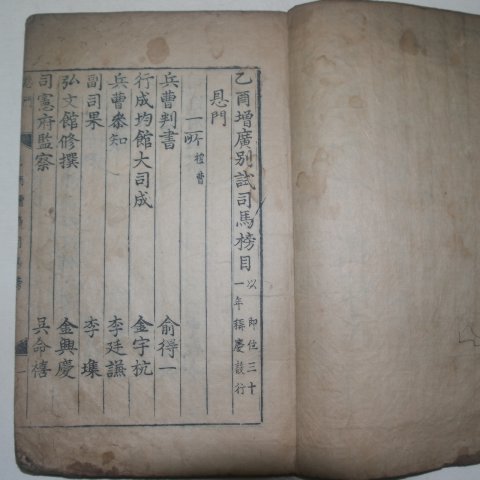 乙酉增廣別試司馬榜目 以即位三十一年稱慶設行
恩門
一所 禮曹
兵曹判書 俞得一
行成均館大司成 金宇杭
兵曹參知 李廷謙
副司果 李㙫
弘文館修撰 金興慶
司憲府監察 吳命禧